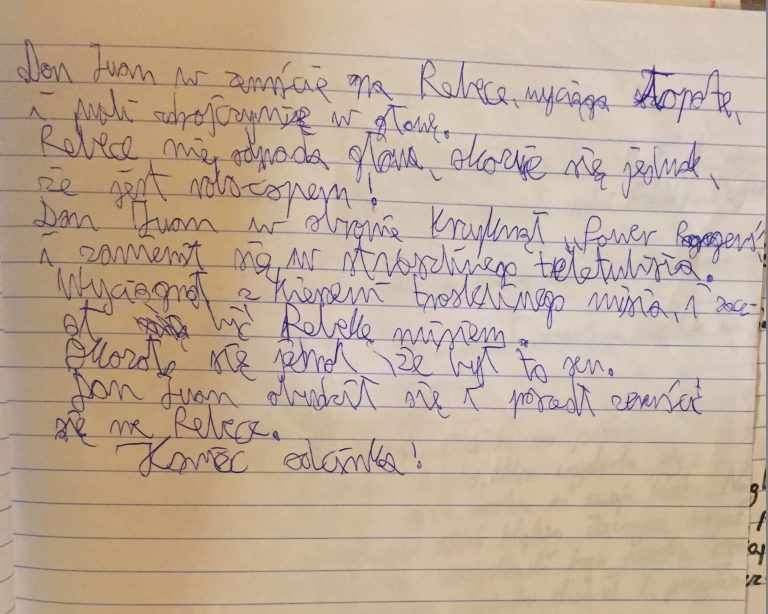 Don Juan w zemście na Rebece, wyciąga łopatę,
i wali zdrajczynię w głowę.
Rebece nie odpada głowa, okazuje się jednak,
że jest robocopem!
Don Juan w obronie krzyknął „Power Rangers"
i zamienił się w straszliwego teletubisia.
Wyciągnął z kieszeni troskliwego misia, i zacz-
ął bić Rebekę misiem.
Okazało się jednak, że był to sen.
Don Juan obudził się i poszedł zemścić
się na Rebece.
Koniec odcinka!